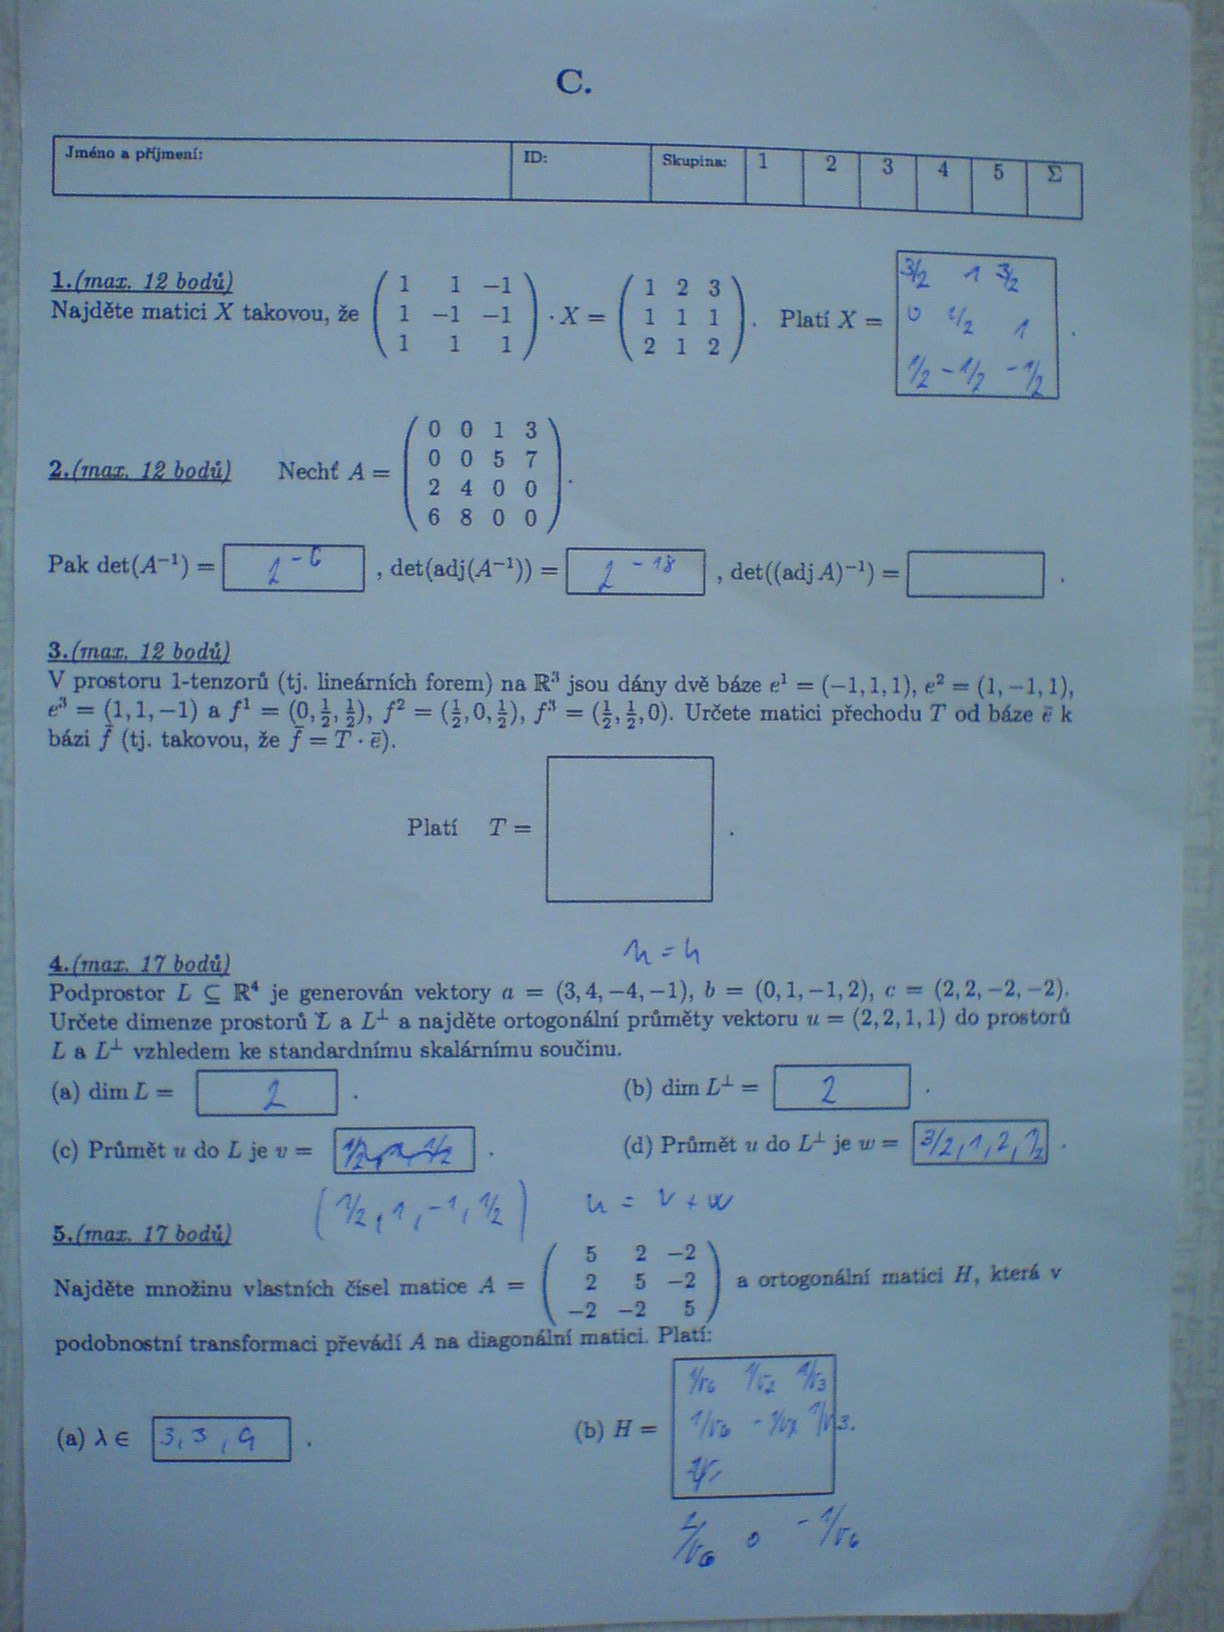 C.
Jméno a příjmení: ID: Skupina: 1 2 3 4 5 Σ
1.(max. 12 bodů)
Najděte matici X takovou, že ( 1 1 −1 ; 1 −1 −1 ; 1 1 1 ) · X = ( 1 2 3 ; 1 1 1 ; 2 1 2 ). Platí X = .
3/2 1 3/2
0 1/2 1
1/2 -1/2 -1/2
2.(max. 12 bodů) Nechť A = ( 0 0 1 3 ; 0 0 5 7 ; 2 4 0 0 ; 6 8 0 0 ).
Pak det(A⁻¹) = 2⁻⁶ , det(adj(A⁻¹)) = 2⁻¹⁸ , det((adj A)⁻¹) = .
3.(max. 12 bodů)
V prostoru 1-tenzorů (tj. lineárních forem) na ℝ³ jsou dány dvě báze e¹ = (−1, 1, 1), e² = (1, −1, 1),
e³ = (1, 1, −1) a f¹ = (0, ½, ½), f² = (½, 0, ½), f³ = (½, ½, 0). Určete matici přechodu T od báze ē k
bázi f̄ (tj. takovou, že f̄ = T · ē).
Platí T = .
n = 4
4.(max. 17 bodů)
Podprostor L ⊆ ℝ⁴ je generován vektory a = (3, 4, −4, −1), b = (0, 1, −1, 2), c = (2, 2, −2, −2).
Určete dimenze prostorů L a L⊥ a najděte ortogonální průměty vektoru u = (2, 2, 1, 1) do prostorů
L a L⊥ vzhledem ke standardnímu skalárnímu součinu.
(a) dim L = 2 . (b) dim L⊥ = 2 .
(c) Průmět u do L je v = . (d) Průmět u do L⊥ je w = 3/2, 1, 2, 1/2 .
(1/2, 1, -1, 1/2) u = v + w
5.(max. 17 bodů)
Najděte množinu vlastních čísel matice A = ( 5 2 −2 ; 2 5 −2 ; −2 −2 5 ) a ortogonální matici H, která v
podobnostní transformaci převádí A na diagonální matici. Platí:
(a) λ ∈ 3, 3, 9 . (b) H = .
1/√6 1/√2 1/√3
1/√6 -1/√2 1/√3
2/√6 0 -1/√6